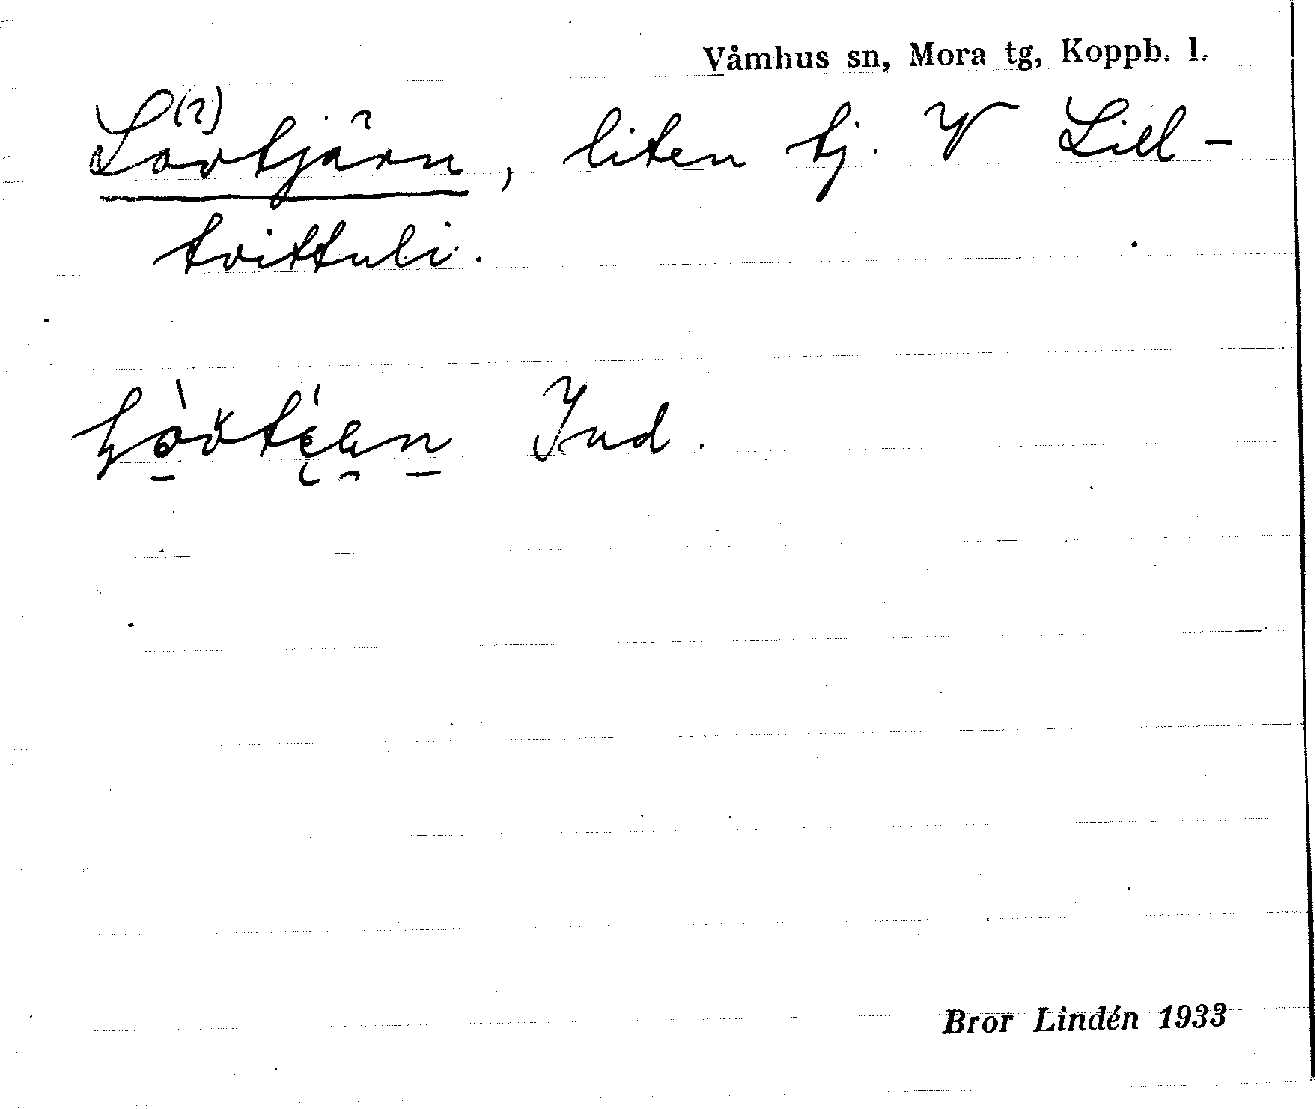 Våmhus sn, Mora tg, Koppb. l.
Lövtjärn(?), liten tj. V Lill-
tvittuli.
Ind.
Bror Lindén 1933